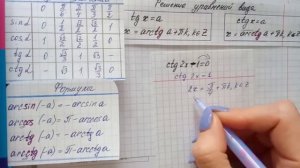 0 π/6 π/4 π/3 π/2
sin α 0 1/2 √2/2 √3/2 1
cos α 1 √3/2 √2/2 1/2 0
tg α 0 √3/3 1 √3 –
ctg α – √3 1 √3/3 0
Формулы
arcsin(-a) = -arcsin a
arccos(-a) = π - arccos a
arctg(-a) = -arctg a
arcctg(-a) = π - arcctg a
Решения уравнений вида
tg x = a
x = arctg a + πk, k∈Z
ctg x = a
x = arcctg a + πk, k∈Z
ctg 2x - 1 = 0
ctg 2x = 1
2x = π/4 + πk, k∈Z